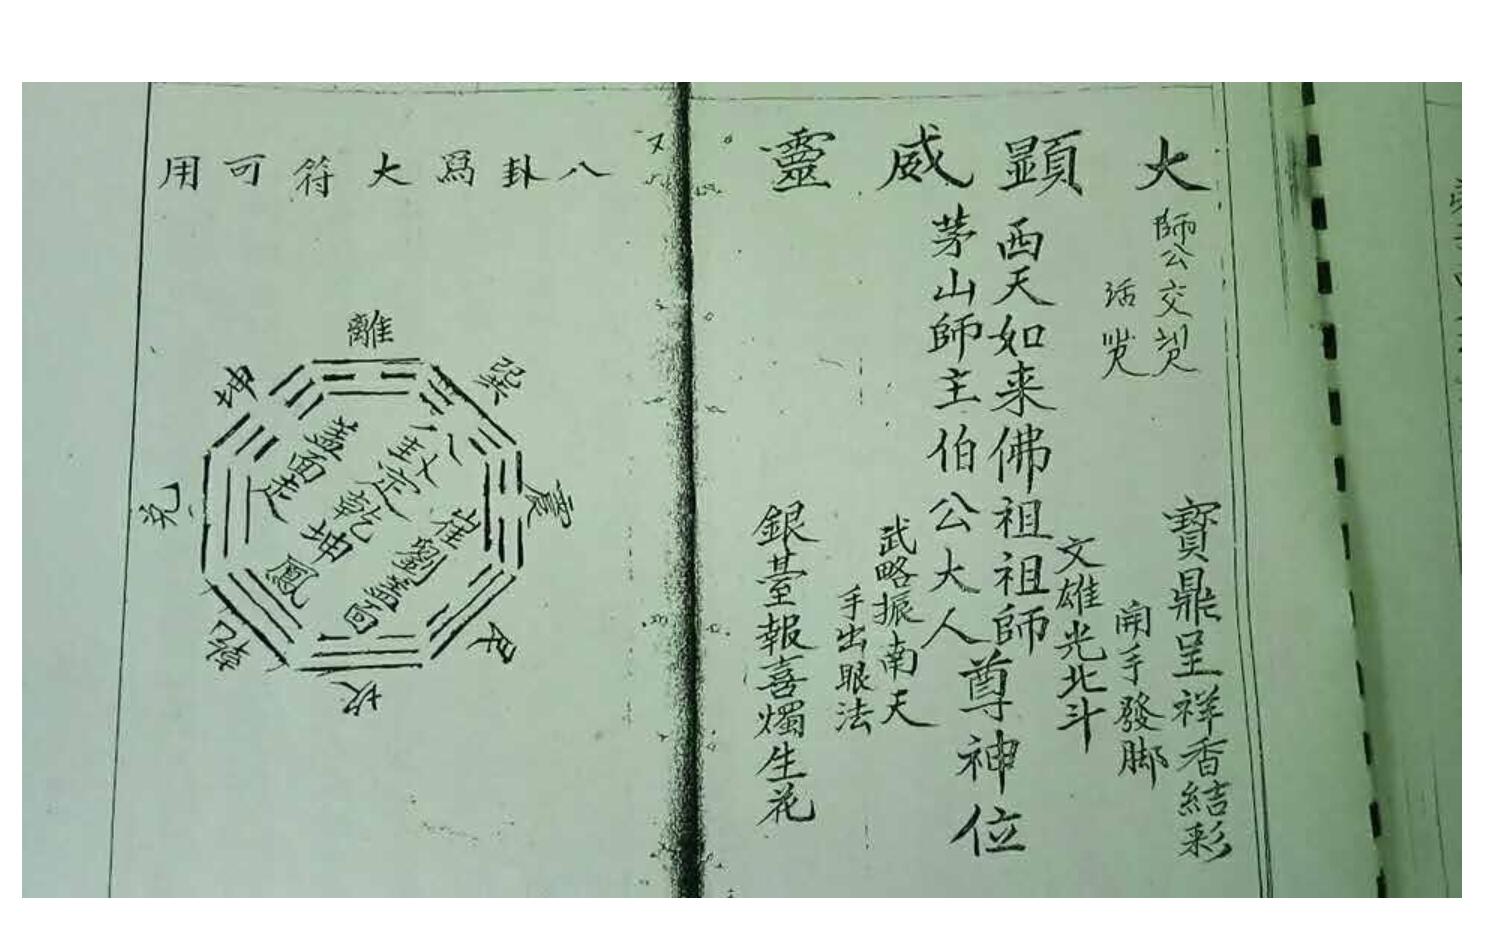 大顯威靈
師公交
寶鼎呈祥香結彩
開手發脚
文雄光北斗
西天如来佛祖祖師
茅山師主伯公大人
尊神位
武略振南天
手出眼法
銀臺報喜燭生花
八卦爲大符可用
離
巽
震
艮
坎
乾
兑
坤
崔劉蓋面
八卦定乾坤
蓋面走鳳